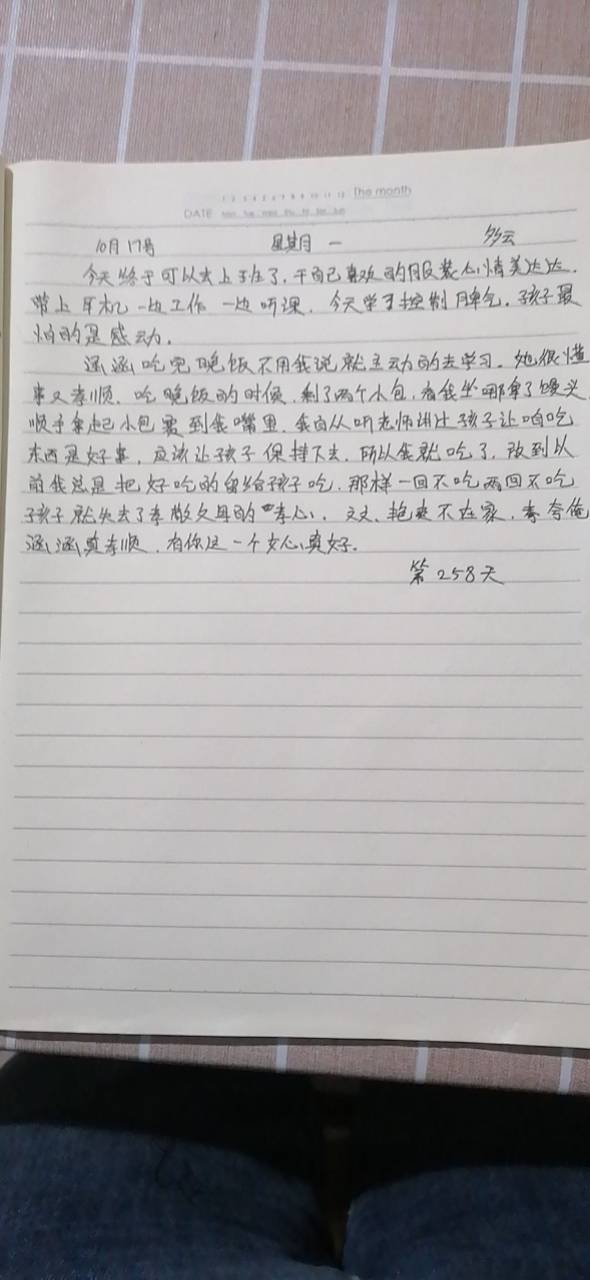 1 2 3 4 5 6 7 8 9 10 11 12 The month
DATE Mon Tue Wed Thu Fri Sat Sun
10月17号 星期一 多云
今天终于可以去上班了,干自己喜欢的服装心情美达达.
带上耳机一边工作一边听课.今天学了控制脾气.孩子最
怕的是感动.
涵涵吃完晚饭不用我说就主动的去学习.她很懂
事又孝顺.吃晚饭的时候,剩了两个小包,看我坐那拿了馒头
顺手拿起小包要到我嘴里.我自从听老师讲让孩子让咱吃
东西是好事,应该让孩子保持下去.所以我就吃了.改到以
前我总是把好吃的留给孩子吃.那样一回不吃两回不吃
孩子就失去了孝敬父母的孝心.文文.艳爽不在家.李夸俺
涵涵真孝顺.有你这一个女心真好.
第258天